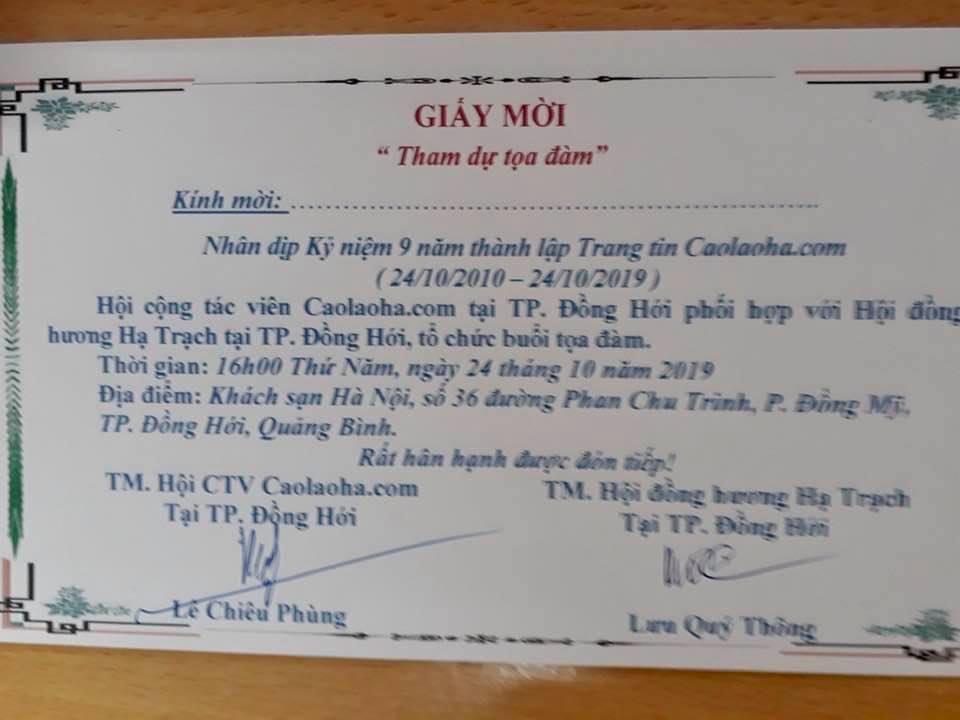 GIẤY MỜI
“ Tham dự tọa đàm”
Kính mời: ........................................................................
Nhân dịp Kỷ niệm 9 năm thành lập Trang tin Caolaoha.com
( 24/10/2010 – 24/10/2019 )
Hội cộng tác viên Caolaoha.com tại TP. Đồng Hới phối hợp với Hội đồng
hương Hạ Trạch tại TP. Đồng Hới, tổ chức buổi tọa đàm.
Thời gian: 16h00 Thứ Năm, ngày 24 tháng 10 năm 2019
Địa điểm: Khách sạn Hà Nội, số 36 đường Phan Chu Trinh, P. Đồng Mỹ,
TP. Đồng Hới, Quảng Bình.
Rất hân hạnh được đón tiếp!
TM. Hội CTV Caolaoha.com
Tại TP. Đồng Hới
Lê Chiêu Phùng
TM. Hội đồng hương Hạ Trạch
Tại TP. Đồng Hới
Lưu Quý Thông